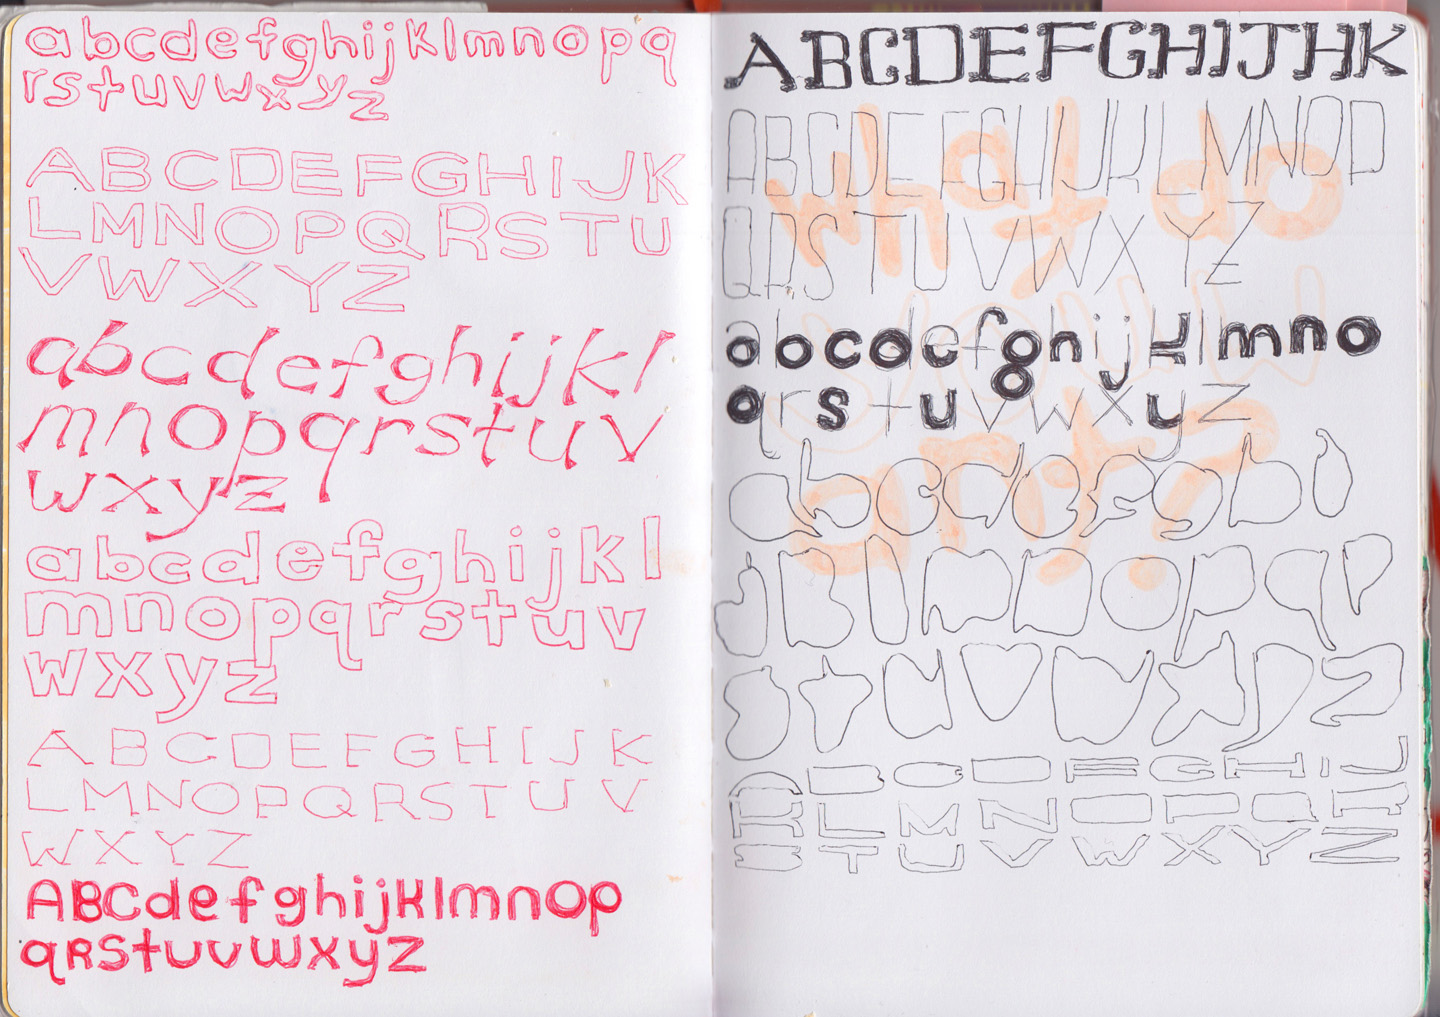 abcdefghijklmnopq
rstuvwxyz
ABCDEFGHIJK
LMNOPQRSTU
VWXYZ
abcdefghijkl
mnopqrstuv
wxyz
abcdefghijkl
mnopqrstuv
wxyz
ABCDEFGHIJK
LMNOPQRSTUV
WXYZ
ABCdefghijklmnOp
qRStuvwxyz
ABCDEFGHIJHK
ABCDEFGHIJKLMNOP
QRSTUVWXYZ
what do
abcdefghijklmno
qrstuvwxyz
abcdefghi
jklmnopqr
stuvwxyz
ABCDFGHIJ
KLMNOPQR
STUVWXYZ